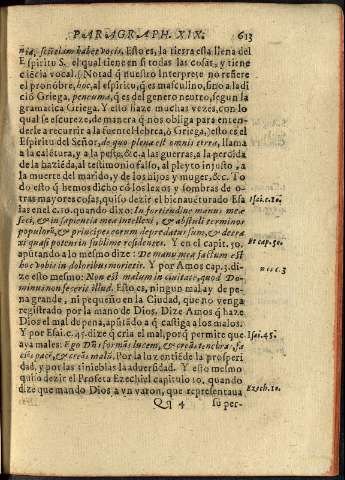 PARAGRAPH. XIX. 613
nia, scientiam habet vocis. Esto es, la tierra està llena del
Espiritu S. el qual tiene en si todas las cosas, y tiene
ciẽcia vocal. (Notad q̃ nuestro Interprete no refiere
el pronõbre, hoc, al espiritu, q̃ es masculino, sino a la di
ciõ Griega, peneuma, q̃ es del genero neutro, segun la
gramatica Griega. Y esto haze muchas vezes, con lo
qual se escureze, de manera q̃ nos obliga para enten-
derle a recurrir a la fuente Hebrea, ò Griega,) esto es el
Espiritu del Señor, de quo plena est omnis terra, llama
a la calẽtura, y a la peste, &c. a las guerras, a la perdida
de la haziẽda, al testimonio falso, al pleyto injusto, a
la muerte del marido, y de los hijos y muger, &c. To
do esto q̃ hemos dicho cõ los lexos y sombras de o-
tras mayores cosas, quiso dezir el bienauẽturado Esa
Isai. c. 10.
ias en el c. 10. quando dixo: In fortitudine manus meæ
feci, & in sapientia mea intellexi, & abstuli terminos
populorũ, & principes eorum depredatus sum, & detra
xi quasi potens in sublime residentes. Y en el capit. 50.
Et cap. 50.
apũtando a lo mesmo dize: De manu mea factum est
hoc vobis in doloribus moriemini. Y por Amos cap. 3. di-
c. 3
ze esto mesmo: Non est malum in ciuitate, quod Do-
minus non fecerit. Esto es, ningun mal, ay de pe-
na grande, ni pequeño en la Ciudad, que no venga
registrado por la mano de Dios. Dize Amos q̃ haze
Dios el mal de pena, apũtãdo a q̃ castiga a los malos.
Y por Esai. c. 45. dize q̃ cria el mal, porq̃ permite que
Isai. 45.
aya males: Ego Dñs formãs lucem, & creãs tenebras, fa
ciẽs pacẽ, & creãs malũ. Por la luz entiẽde la prosperi
dad, y por las tinieblas la aduersidad. Y esto mesmo
quiso dezir el Profeta Ezechiel capitulo 10. quando
Ezech. 10.
dize que mando Dios a vn varon, que representaua
Qq 4 su per-